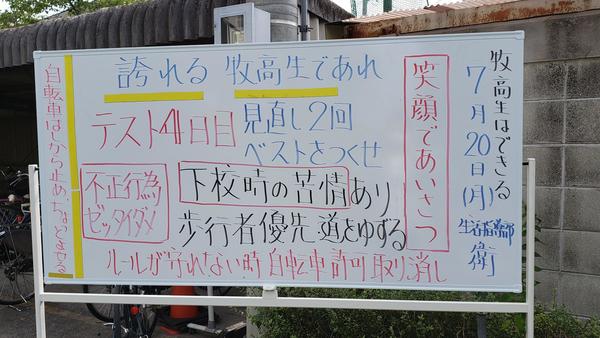 牧高生はできる
7月20日(月)
生活指導部
衛
笑顔であいさつ
誇れる 牧高生であれ
テスト4日目
見直し2回
ベストをつくせ
不正行為
ゼッタイダメ
下校時の苦情あり
歩行者優先 道をゆずる
ルールが守れない時 自転車許可取り消し
自転車はしから止め、つめとませる